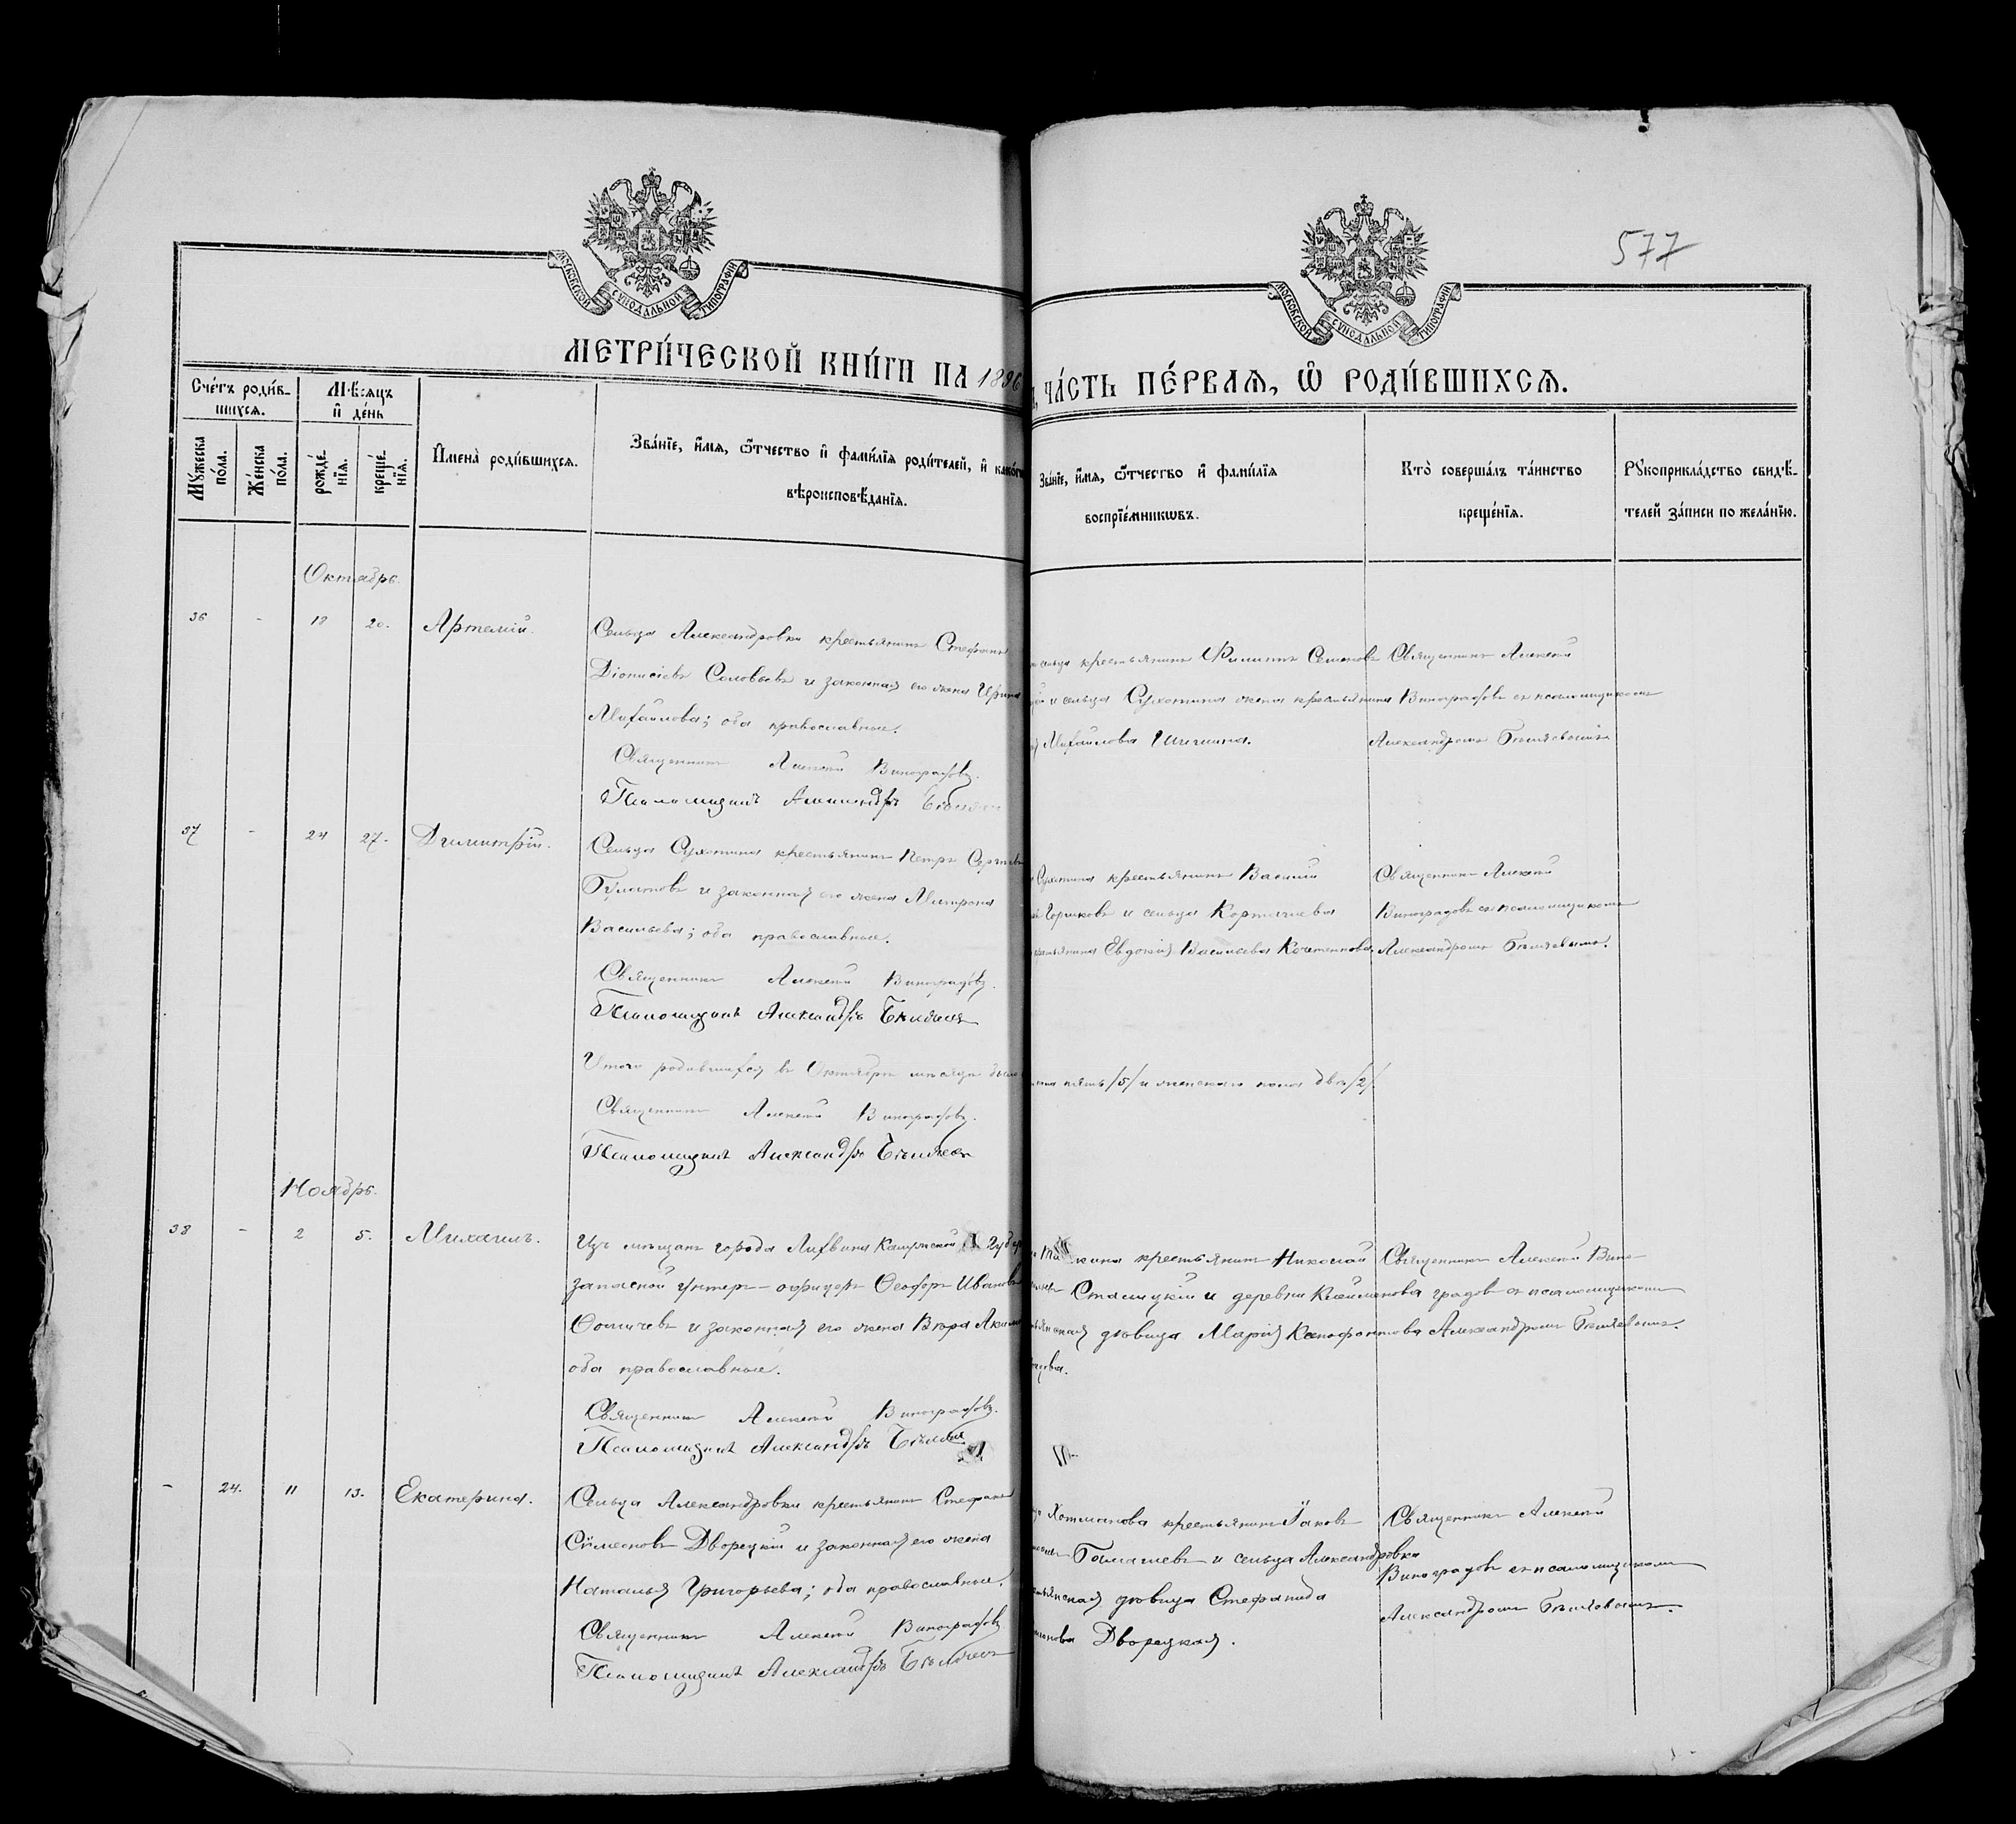 577
МОСКОВСКОЙ СУНОДАЛЬНОЙ ТИПОГРАФИИ
МОСКОВСКОЙ СУНОДАЛЬНОЙ ТИПОГРАФИИ
МЕТРИ́ЧЕСКОЙ КНИ́ГИ НА 1896
ЧА́СТЬ ПЕ́РВАЯ, Ѡ РОДИ́ВШИХСЯ.
Сче́тъ роди́в-
шихся.
Мѣсяцъ
и де́нь
Мꙋжеска по́ла.
Же́нска по́ла.
рожде́нїя.
креще́нїя.
Имена̀ роди́вшихся.
Зва́нїе, и҆́мя, ѻ҆́тчество и҆ фами́лїя роди́телей, и҆ како́гѡ
вѣроисповѣ́данїя.
Зва́нїе, и҆́мя, ѻ҆́тчество и҆ фами́лїя
воспрїе́мникѡвъ.
Кто̀ соверша́лъ та́инство
креще́нїя.
Рꙋкоприкла́дство свидѣ́-
телей за́писи по жела́нїю.
Октябрь.
36 - 18 20. Артемій.
Сельца Александровки крестьянинъ Стефанъ
Діонисіевъ Соловьевъ и законная его жена Ирина
Михайлова; оба православные.
Священникъ Алексѣй Виноградовъ.
Псаломщикъ Александръ Бѣляевъ
сельца крестьянинъ Филиппъ Семеновъ
и сельца Сухотина жена крестьянина
Михайлова Шишкина.
Священникъ Алексѣй
Виноградовъ съ псаломщикомъ
Александромъ Бѣляевымъ
37 - 24 27. Димитрій.
Сельца Сухотина крестьянинъ Петръ Сергѣевъ
Булатовъ и законная его жена Матрона
Васильева; оба православные.
Священникъ Алексѣй Виноградовъ.
Псаломщикъ Александръ Бѣляевъ
Сухотина крестьянинъ Василій
Горшковъ и сельца
Евдокія Васильева
Священникъ Алексѣй
Виноградовъ съ псаломщикомъ
Александромъ Бѣляевымъ.
Итого родившихся въ Октябрѣ мѣсяцѣ было
пола пять /5/ и женскаго пола двѣ /2/
Священникъ Алексѣй Виноградовъ.
Псаломщикъ Александръ Бѣляевъ
Ноябрь.
38 - 2 5. Михаилъ.
Изъ мѣщанъ города Лихвина Калужской губер
запасной унтеръ-офицеръ Ѳеодоръ Ивановъ
Ѳомичевъ и законная его жена Вѣра
оба православные.
Священникъ Алексѣй Виноградовъ.
Псаломщикъ Александръ Бѣляевъ
крестьянинъ Николай
и деревни Клейменова
дѣвица Марія Ксенофонтова
Священникъ Алексѣй Вино-
градовъ съ псаломщикомъ
Александромъ Бѣляевымъ.
- 24. 11 13. Екатерина.
Сельца Александровки крестьянинъ Стефанъ
Сѵмеоновъ Дворецкій и законная его жена
Наталья Григорьева; оба православные.
Священникъ Алексѣй Виноградовъ
Псаломщикъ Александръ Бѣляевъ
Хотманова крестьянинъ Іаковъ
и сельца Александровки
дѣвица Стефанида
Дворецкая.
Священникъ Алексѣй
Виноградовъ съ псаломщикомъ
Александромъ Бѣляевымъ.